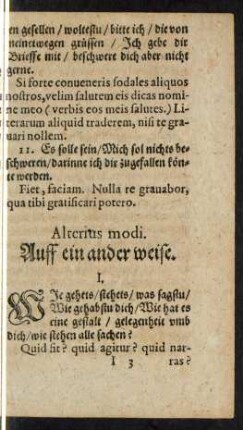 en gesellen / woltestu / bitte ich / die von
meinetwegen grüssen / Ich gebe dir
Brieffe mit / beschwert dich aber nicht
gerne.
Si forte conveneris sodales aliquos
nostros, velim salutem eis dicas nomi-
ne meo (verbis eos meis salutes.) Li-
terarum aliquid traderem, nisi te gra-
uari nollem.
11. Es solle sein / Mich sol nichts be-
schweren / darinne ich dir zugefallen kön-
te werden.
Fiet, faciam. Nulla re grauabor,
qua tibi gratificari potero.
Alterius modi.
Auff ein ander weise.
I.
WIe gehets / stehets / was sagstu /
Wie gehabstu dich / Wie hat es
eine gestalt / gelegenheit vmb
dich / wie stehen alle sachen?
Quid fit? quid agitur? quid nar-
I 3 ras?